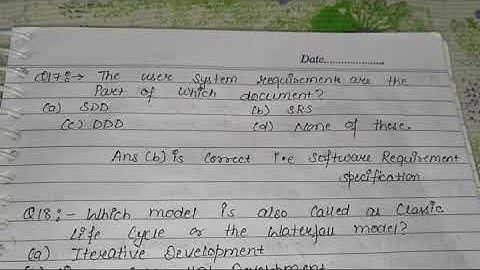 Date..................
Q17:→ The user system requirement are the
Part of which document?
(a) SDD (b) SRS
(c) DDD (d) None of these.
Ans (b) is correct i.e Software Requirement
specification
Q18:- Which model is also called as Classic
Life Cycle or the Waterfall model?
(a) Iterative Development